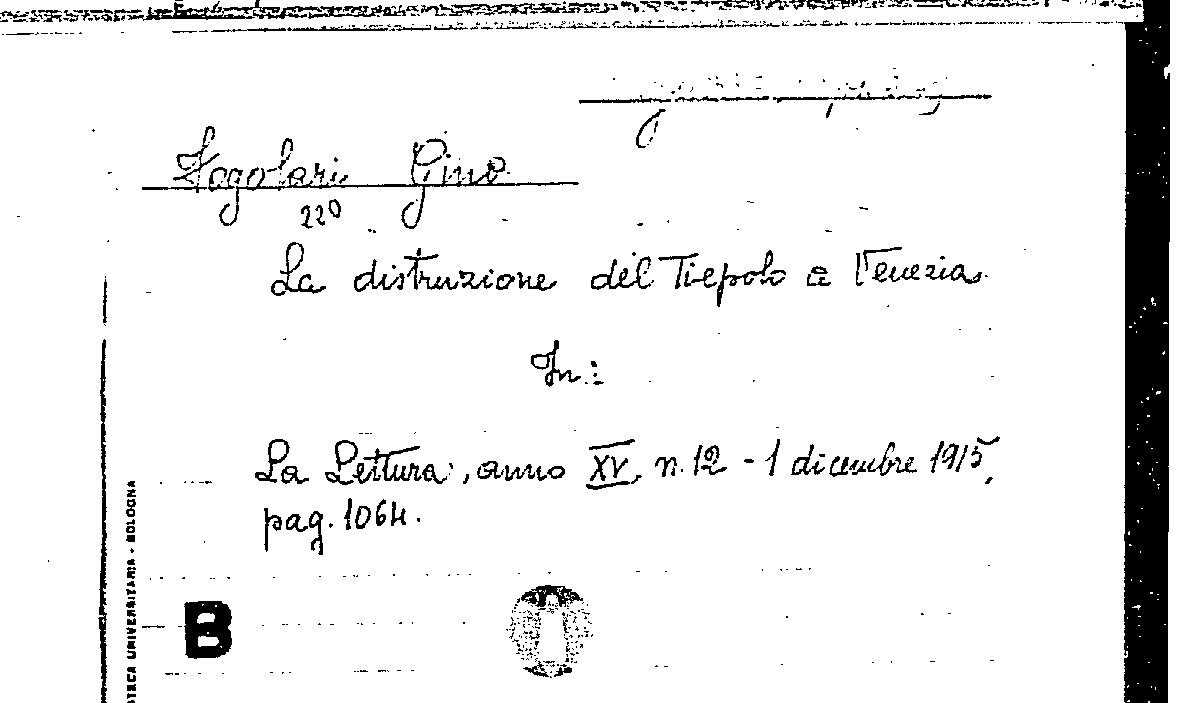 Fogolari Gino
220
La distruzione del Tiepolo a Venezia
In:
La Lettura, anno XV, n. 12 - 1 dicembre 1915,
pag. 1064.
B
OTECA UNIVERSITARIA - BOLOGNA